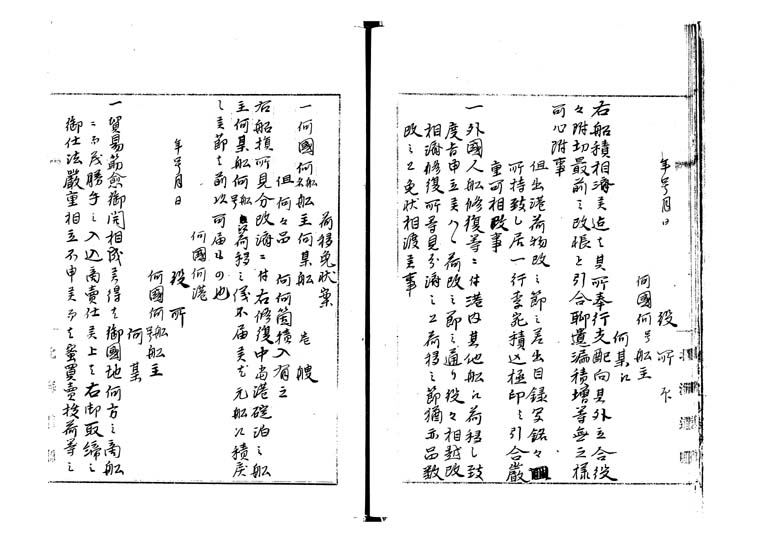 年号月日
役所印
何國何号船主
何某江
右船積相済候迄ハ其所奉行支配向其外立合役
々附切最前之改帳と引合聊遺漏積増等無之様
可心附事
但出港荷物改之節ハ差出目録写銘々
所持致し居一行毎宛積込極印ニ引合厳
重可相改事
一外国人船修復等ニ付港内其他船江荷移し致
度旨申立候ハヽ荷改之節之通り役々相越改
相済修復所等見分済之上荷移之節猶亦品数
改之上免状相渡候事
荷移免状案
一何國何船船主何某船 壱艘
但何々品 何何箇積入有之
右船損所見分改済ニ付右修復中当港碇泊之船
主何某船何号船江荷移之儀承届候尤元船江積戻
之節ハ前以可届出もの也
年号月日
何國何港
役所
何國何号船船主
何某
一貿易筋愈御開相成候得ハ御國地何方之商船
ニ而も勝手ニ入込商賣仕候上ハ右御取締之
御仕法厳重相立不申候而ハ蜜買賣抜荷等之